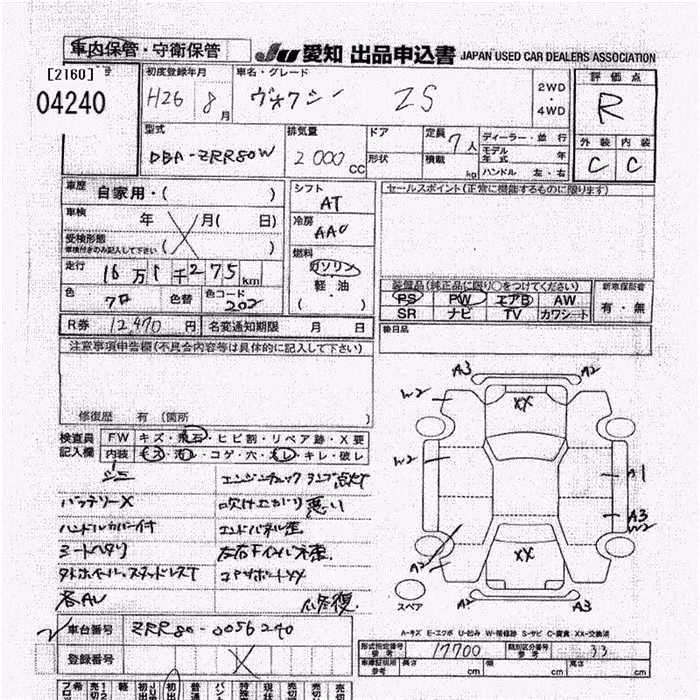 車内保管・守衛保管
JU 愛知 出品申込書 JAPAN USED CAR DEALERS ASSOCIATION
[2160] 号
04240
初度登録年月
H26 8月
車名・グレード
ヴォクシー ZS
2WD
・
4WD
評価点
R
外装 内装
C C
型式
DBA-ZRR80W
排気量
2000 CC
ドア
形状
定員 7人
積載 kg
ディーラー・並行
モデル年式 年
ハンドル 左・右
車歴 自家用・( )
車検 年 月( 日)
受検形態
車検付きのみ記入して下さい ( )
走行 16万1千275km
色 色替 色コード 202
R券 12,470円 名変通知期限 月 日
シフト
AT
冷房
AAC
燃料
ガソリン
軽油
( )
セールスポイント(正常に機能するものに限ります)
装備品(純正品に限り○をつけてください)
PS PW エアB AW
SR ナビ TV カワシート
新車保証書
有・無
後日品
注意事項申告欄(不具合内容等は具体的に記入して下さい)
修復歴 有 (箇所 )
検査員記入欄
FW キズ・飛石・ヒビ割・リペア跡・X要
内装 キズ・汚レ・コゲ・穴・スレ・キレ・破レ
シミ
エンジンチェックランプ点灯
バッテリーX
吹け上がり悪い
ハンドルカバー付
エンドパネル歪
シートヘタリ
コアサポートXX
各AU
A3 A2
W2
XX
W2
A1
A3
W2
A2
XX
A2 A3
スペア
A-キズ E-エクボ U-凹み W-補修跡 S-サビ C-腐食 XX-交換済
車台番号 ZRR80-0056240
登録番号 X
形式指定番号
参考
17700
類別区分番号
参考
33
車庫証明用
参考
長さ cm 幅 cm 高さ cm